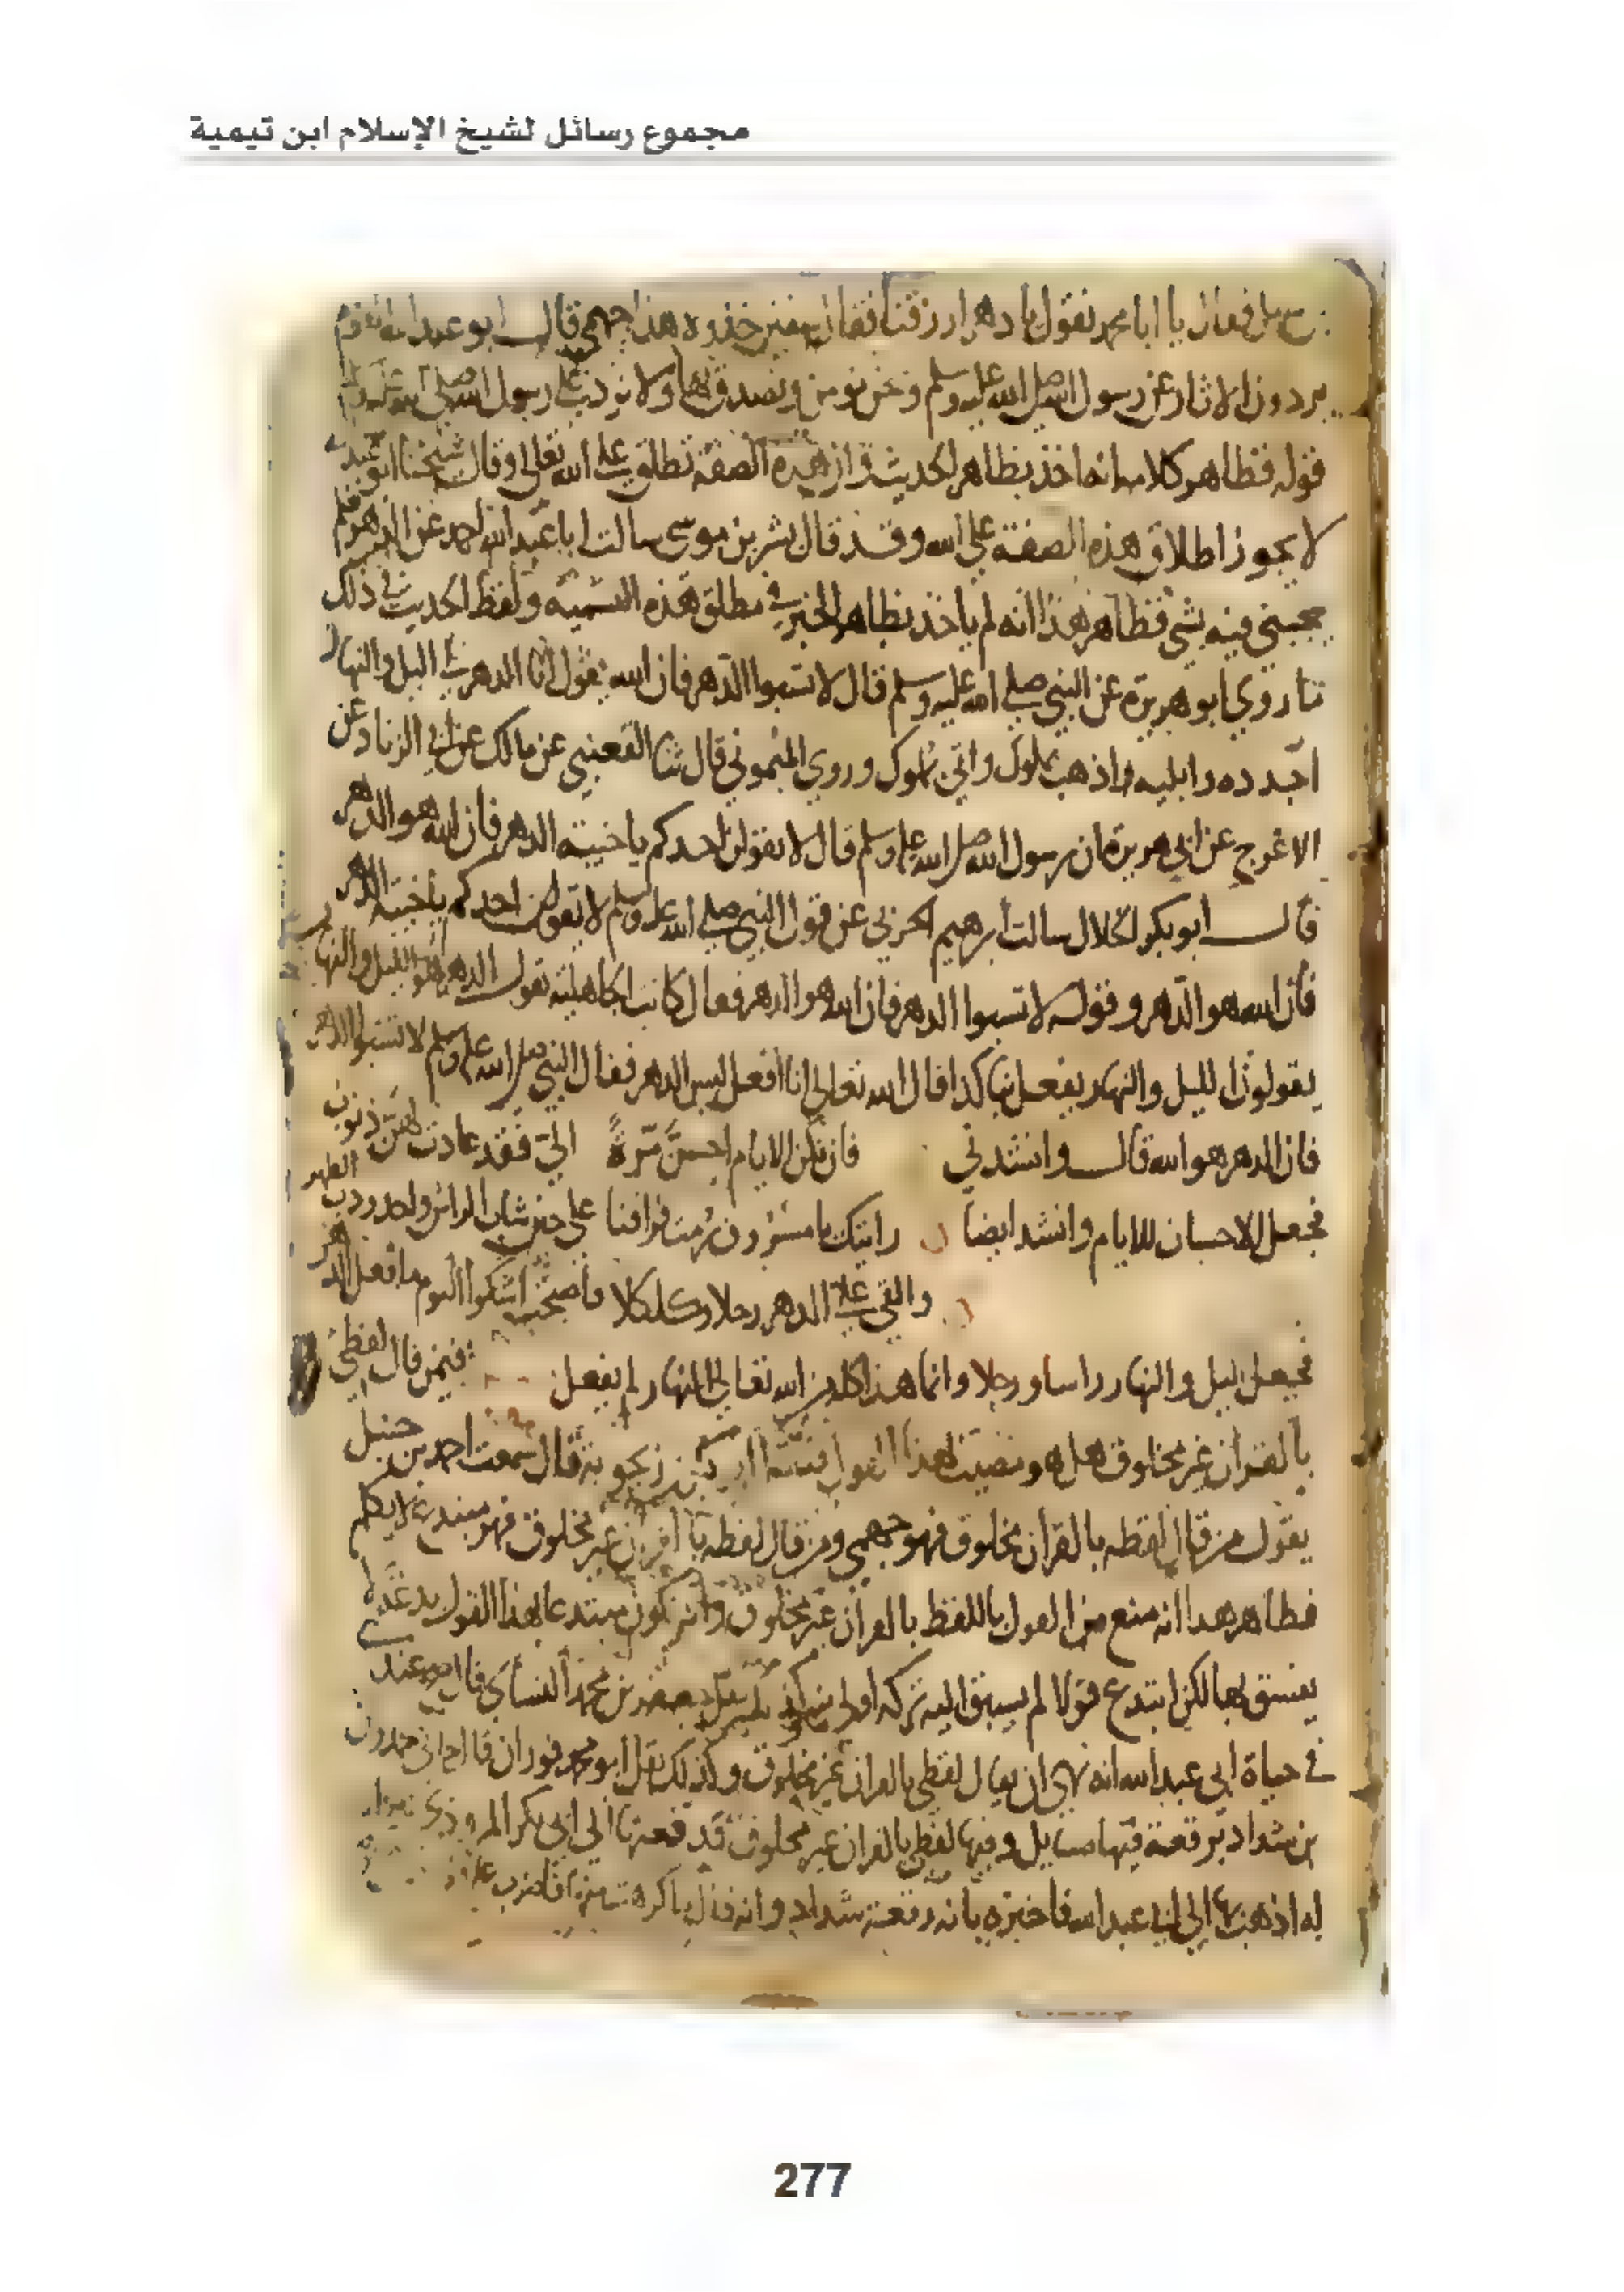 مجموع رسائل لشيخ الإسلام ابن تيمية
فقال يا ابا محمد نقول يا دهر ارزقنا فقال خذوه هذا جهمي قال ابو عبد الله
يردون الاثار عن رسول الله صلى الله عليه وسلم ونحن نومن ونصدق بها ولا نرد على رسول الله صلى الله عليه وسلم
قوله فظاهر كلامه انه اخذ بظاهر الحديث وان هذه الصفة تطلق على الله تعالى وقال شيخنا ابو عبد الله
لا يجوز اطلاق هذه الصفة على الله وقد قال بشر بن موسى سالت ابا عبد الله احمد عن الدهر فلم
يجبني فيه بشي فظاهر هذا انه لم ياخذ بظاهر الخبر في مطلق هذه التسميه ولفظ الحديث في ذلك
روي ابو هريرة عن النبي صلى الله عليه وسلم قال لا تسبوا الدهر فان الله يقول انا الدهر لي اليل والنهار
اجدده وابليه واذهب بملوك واتي بملوك وروي الميموني قال ثنا القعنبي عن مالك عن ابي الزناد عن
الاعرج عن ابي هريرة ان رسول الله صلى الله عليه وسلم قال لا يقولن احدكم يا خيبة الدهر فان الله هو الدهر
قال ابو بكر الخلال سالت ابرهيم الحربي عن قول النبي صلى الله عليه وسلم لا يقولن احدكم يا خيبة الدهر
فان الله هو الدهر وقوله لا تسبوا الدهر فان الله هو الدهر فقال كانت الجاهلية تقول الدهر هو الليل والنهار
يقولون الليل والنهار يفعل بنا كذا فقال الله تعالى انا افعل ليس الدهر فقال النبي صلى الله عليه وسلم لا تسبوا الدهر
فان الدهر هو الله قال وانشدني فان تكن الايام احسن مرة الي فقد عادت لهن ذنوب
فجعل الاحسان للايام وانشد ايضا رايتك يا مسرور رمت فراقنا على حين شاب الراس واحدودب الظهر
والقى على الدهر رجلا وكلكلا فاصبحت اشكوا اليوم ما فعل الدهر
فجعل لليل والنهار راسا ورجلا وانما هذا كله من الله تعالى النهار لم يفعل فيمن قال لفظي
بالقران غير مخلوق هل هو مصيب هذا القول بن زنجويه قال سمعت احمد بن حنبل
يقول من قال لفظه بالقران مخلوق فهو جهمي ومن قال لفظه بالقران غير مخلوق فهو مبتدع لا يكلم
فظاهر هذا انه منع من القول باللفظ بالقران غير مخلوق وانه يكون مبتدعا بهذا القول بدعة
يفسق بها لكن ابتدع قولا لم يسبق اليه تركه اولى بن محمد النسائي
في حياة ابي عبد الله انه نهى ان يقال لفظي بالقران غير مخلوق وكذلك نقل ابو محمد فوران
بن شداد برقعة فيها مسايل وفيها لفظي بالقران غير مخلوق فدفعتها الى ابي بكر المروذي
له اذهب بها الى ابي عبد الله فاخبره بانه رقعة شداد وانه قال ما كرهت منها فاضرب عليه
277